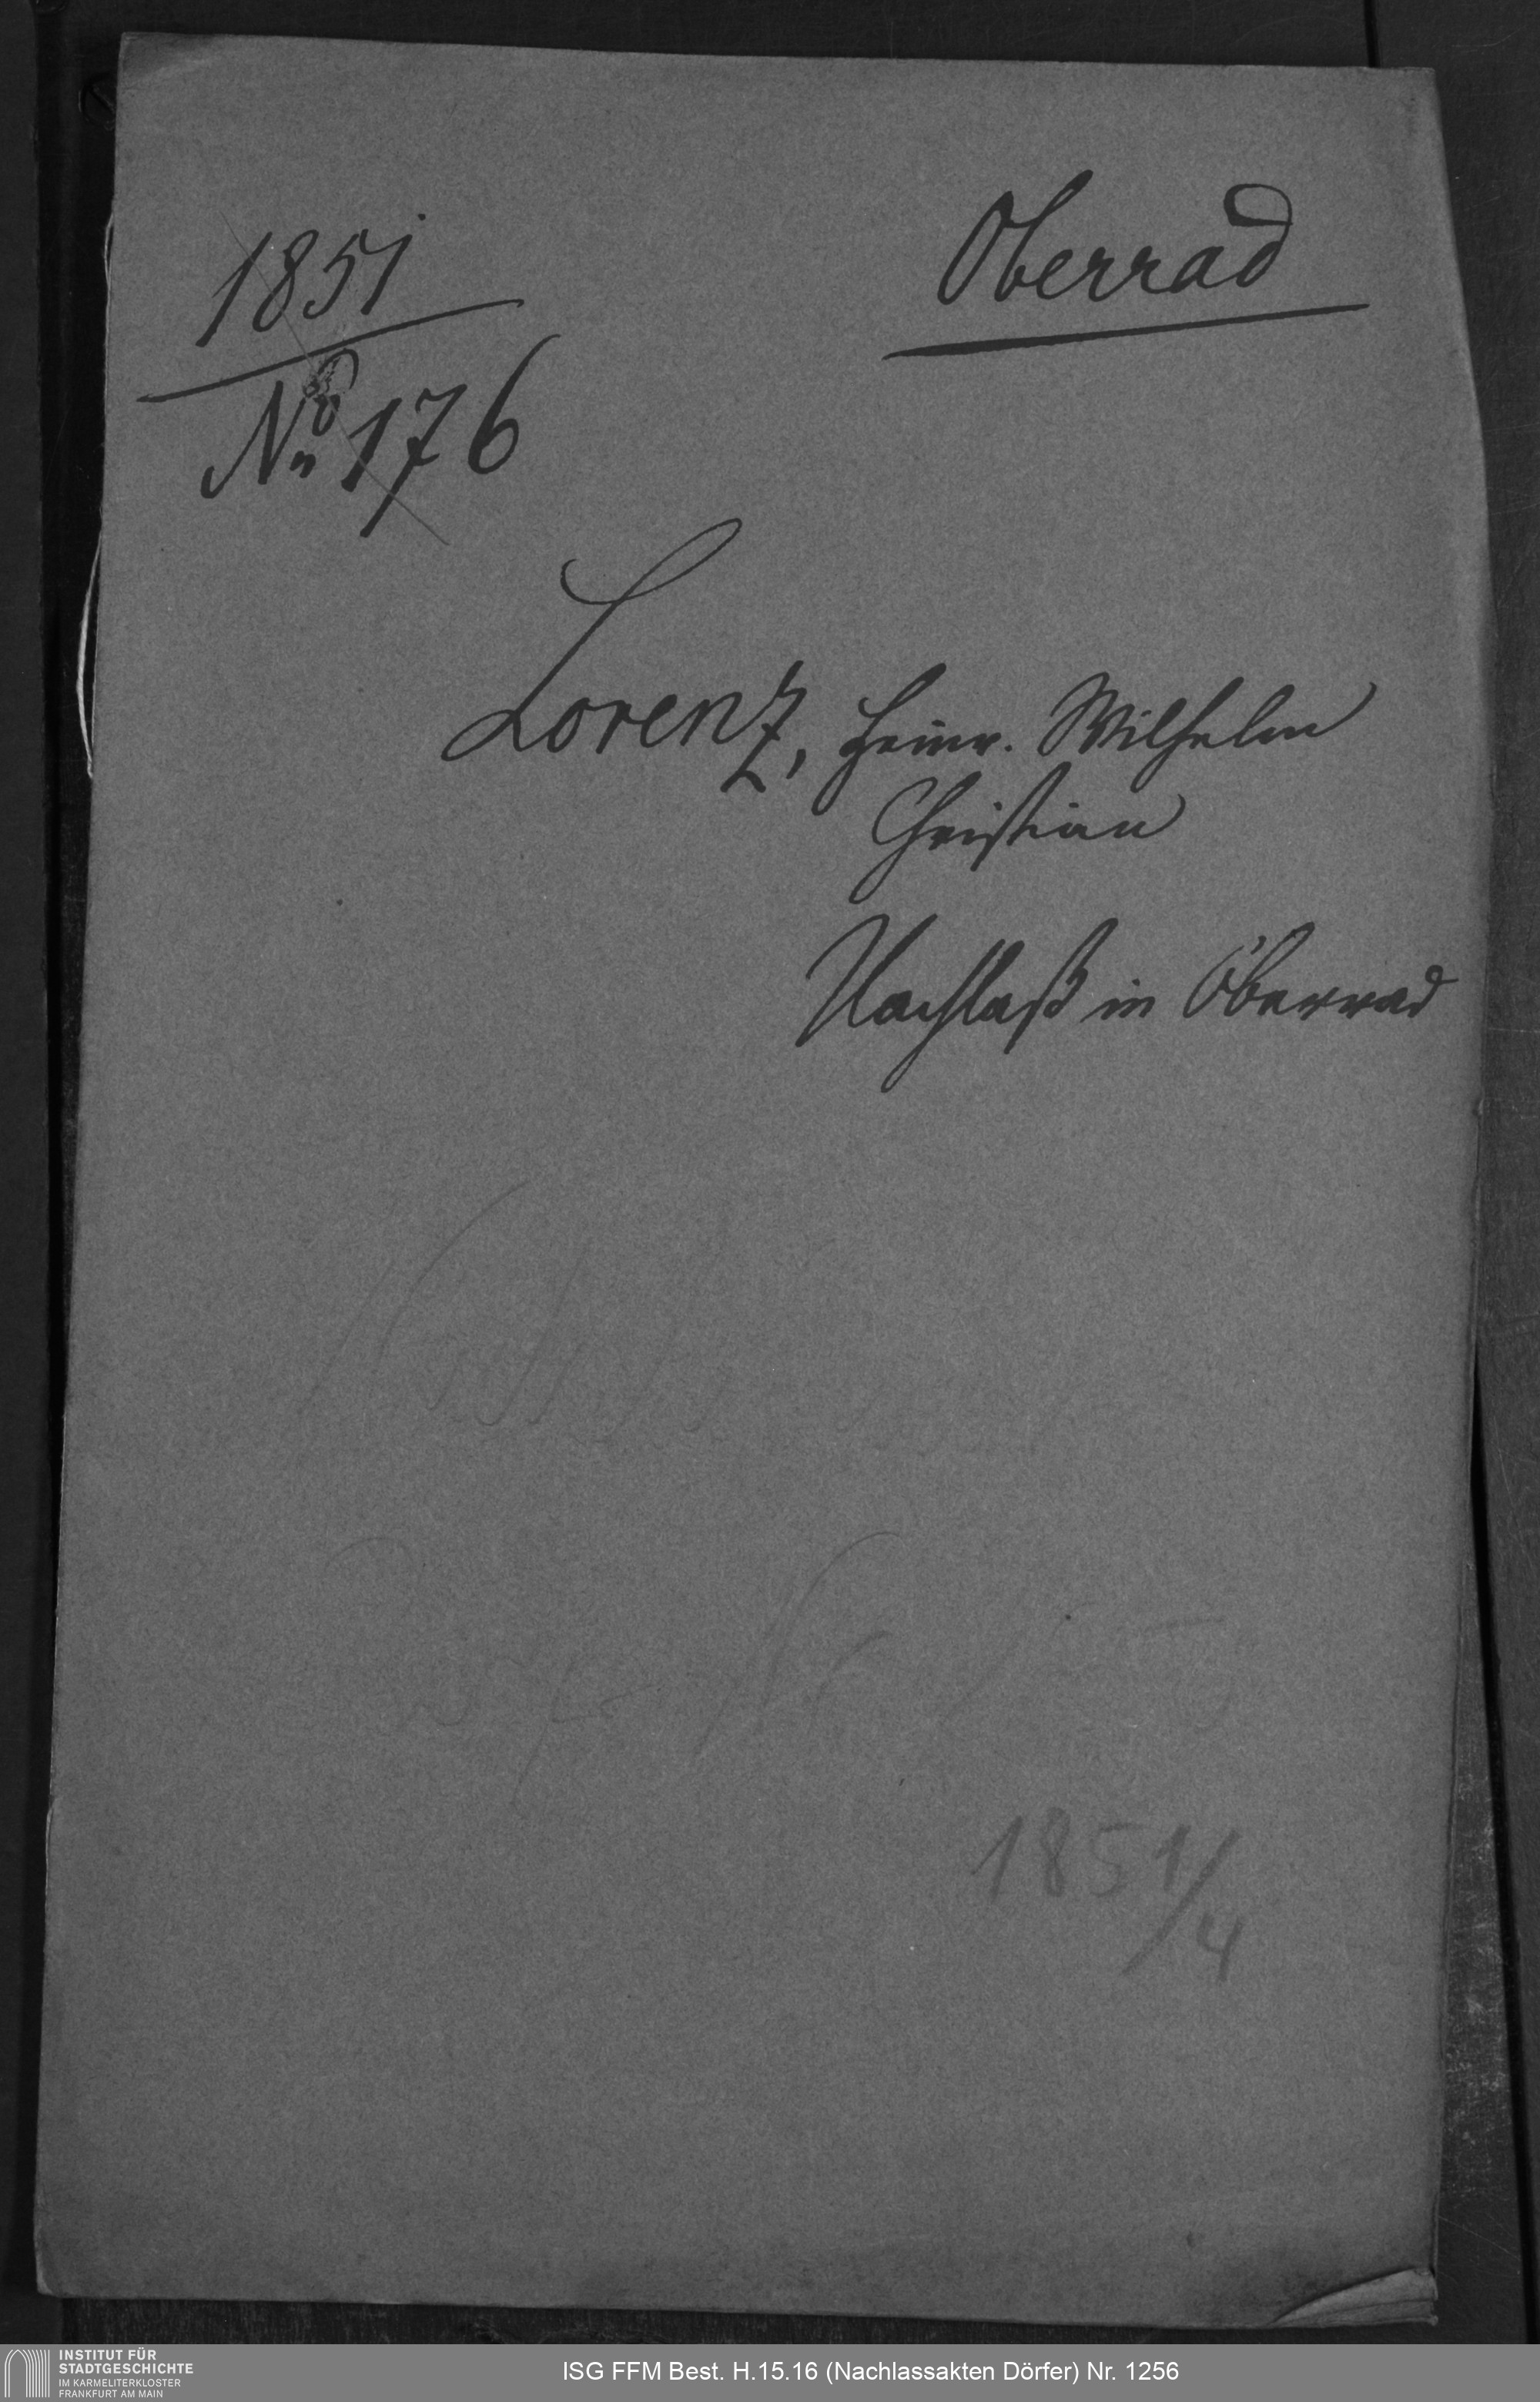 1851
Oberrad
No 176
Lorenz, Heinr. Wilhelm
Christian
Nachlaß in Oberrad
1851/4
INSTITUT FÜR
STADTGESCHICHTE
IM KARMELITERKLOSTER
FRANKFURT AM MAIN
ISG FFM Best. H.15.16 (Nachlassakten Dörfer) Nr. 1256